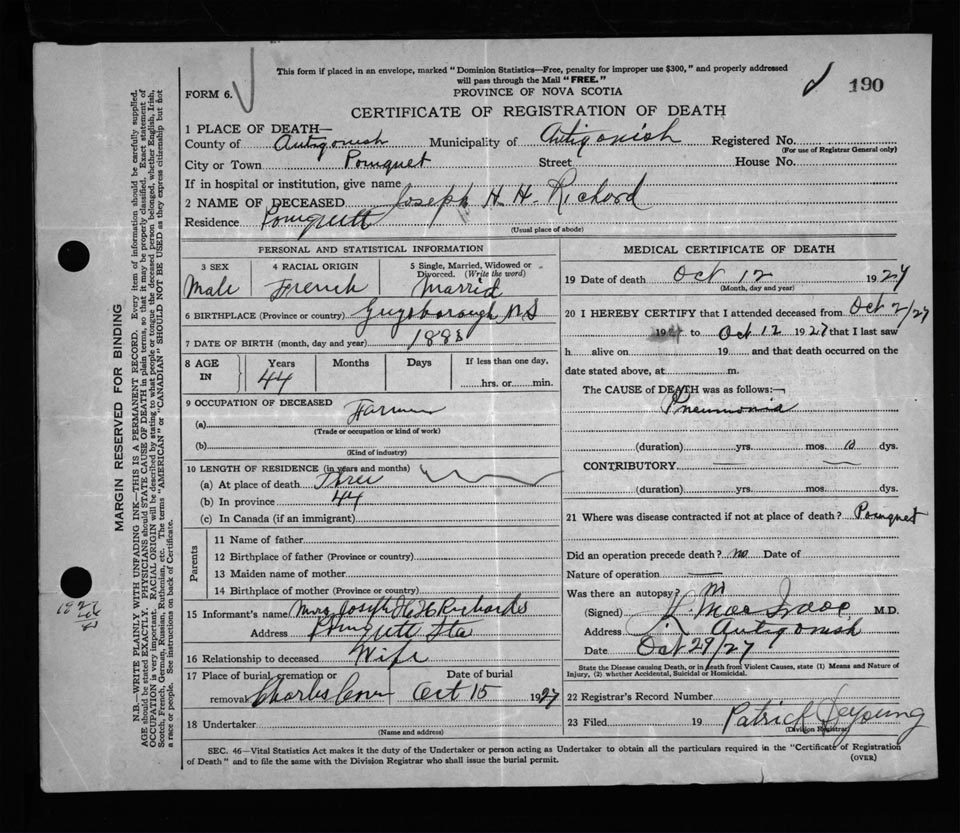 This form if placed in an envelope, marked "Dominion Statistics—Free, penalty for improper use $300," and properly addressed
will pass through the Mail "FREE."
190
FORM 6.
PROVINCE OF NOVA SCOTIA
CERTIFICATE OF REGISTRATION OF DEATH
1 PLACE OF DEATH—
County of Antigonish Municipality of Antigonish Registered No.
(For use of Registrar General only)
City or Town Pomquet Street House No.
If in hospital or institution, give name
2 NAME OF DECEASED Joseph H. H. Richard
Residence Pomquett
(Usual place of abode)
PERSONAL AND STATISTICAL INFORMATION
3 SEX Male
4 RACIAL ORIGIN French
5 Single, Married, Widowed or Divorced. (Write the word) Married
6 BIRTHPLACE (Province or country) Guysborough N.S
7 DATE OF BIRTH (month, day and year) 1883
8 AGE IN Years Months Days If less than one day,
44 hrs. or min.
9 OCCUPATION OF DECEASED
(a) Farmer
(Trade or occupation or kind of work)
(b)
(Kind of industry)
10 LENGTH OF RESIDENCE (in years and months)
(a) At place of death Three
(b) In province 44
(c) In Canada (if an immigrant)
Parents
11 Name of father
12 Birthplace of father (Province or country)
13 Maiden name of mother
14 Birthplace of mother (Province or country)
15 Informant's name Mrs Joseph H Richards
Address Pomquett Sta
16 Relationship to deceased Wife
17 Place of burial, cremation or removal Charles Cove
Date of burial Oct 15 1927
18 Undertaker
(Name and address)
MEDICAL CERTIFICATE OF DEATH
19 Date of death Oct 12 1927
(Month, day and year)
20 I HEREBY CERTIFY that I attended deceased from Oct 2/27
19 to Oct 12 1927 that I last saw
h alive on 19 and that death occurred on the
date stated above, at m.
The CAUSE of DEATH was as follows:—
Pneumonia
(duration) yrs. mos. 10 dys.
CONTRIBUTORY —
(duration) yrs. mos. dys.
21 Where was disease contracted if not at place of death? Pomquet
Did an operation precede death? no Date of
Nature of operation —
Was there an autopsy?
(Signed) M.D.
Address Antigonish
Date Oct 29/27
State the Disease causing Death, or in death from Violent Causes, state (1) Means and Nature of
Injury, (2) whether Accidental, Suicidal or Homicidal.
22 Registrar's Record Number
23 Filed 19 Patrick DeYoung
(Division Registrar)
SEC. 46—Vital Statistics Act makes it the duty of the Undertaker or person acting as Undertaker to obtain all the particulars required in the "Certificate of Registration
of Death" and to file the same with the Division Registrar who shall issue the burial permit.
(OVER)
MARGIN RESERVED FOR BINDING
N.B.—WRITE PLAINLY WITH UNFADING INK—THIS IS A PERMANENT RECORD. Every item of information should be carefully supplied.
AGE should be stated EXACTLY. PHYSICIANS should STATE CAUSE OF DEATH in plain terms, so that it may be properly classified. Exact statement of
OCCUPATION is very important. RACIAL ORIGIN will be described by stating to what people or tongue the deceased person belonged, whether English, Irish,
Scotch, French, German, Russian, Ruthenian, etc. The terms "AMERICAN" or "CANADIAN" SHOULD NOT BE USED as they express citizenship but not
a race or people. See instructions on back of Certificate.
1927